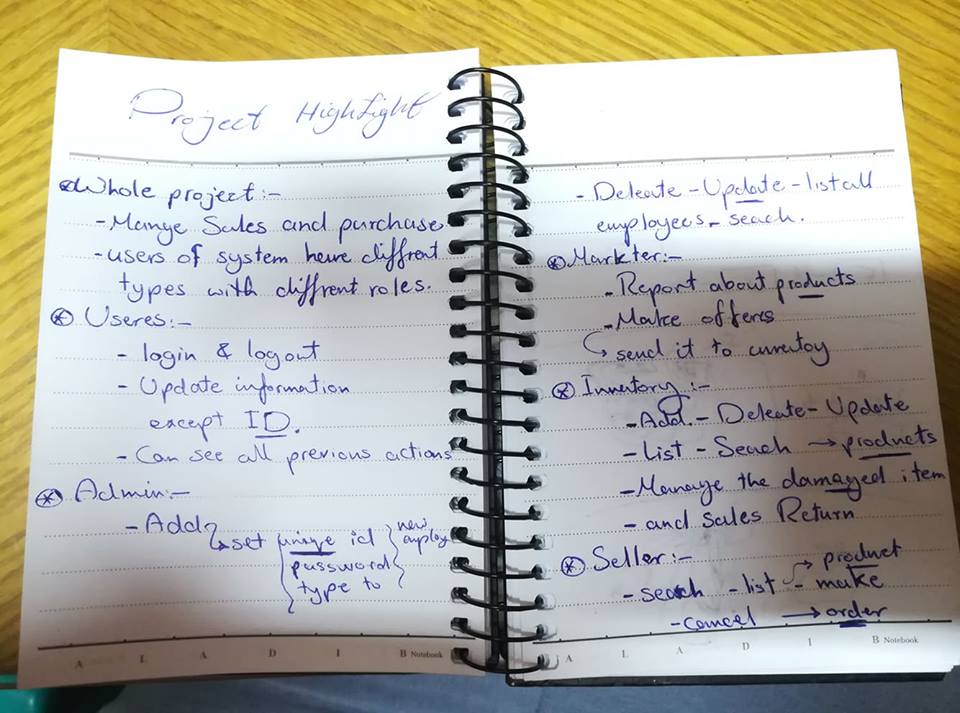 Project HighLight
Whole project:-
- Mange Sales and purchase
- users of system have diffrent
types with diffrent roles.
Useres:-
- login & logout
- Update information
except ID.
- Can see all previous actions
Admin:-
- Add → set unique id
password
type to
new
employ
A L A D I B Notebook
- Deleate - Update - list all
employees - seach.
Markter:-
- Report about products
- Make offers
→ send it to
Inventory:-
- Add - Deleate - Update
- List - Seach → products
- Manage the damaged item
- and Sales Return
Seller:-
→ product
- seach - list - make
- cancel → order
A L A D I B Notebook